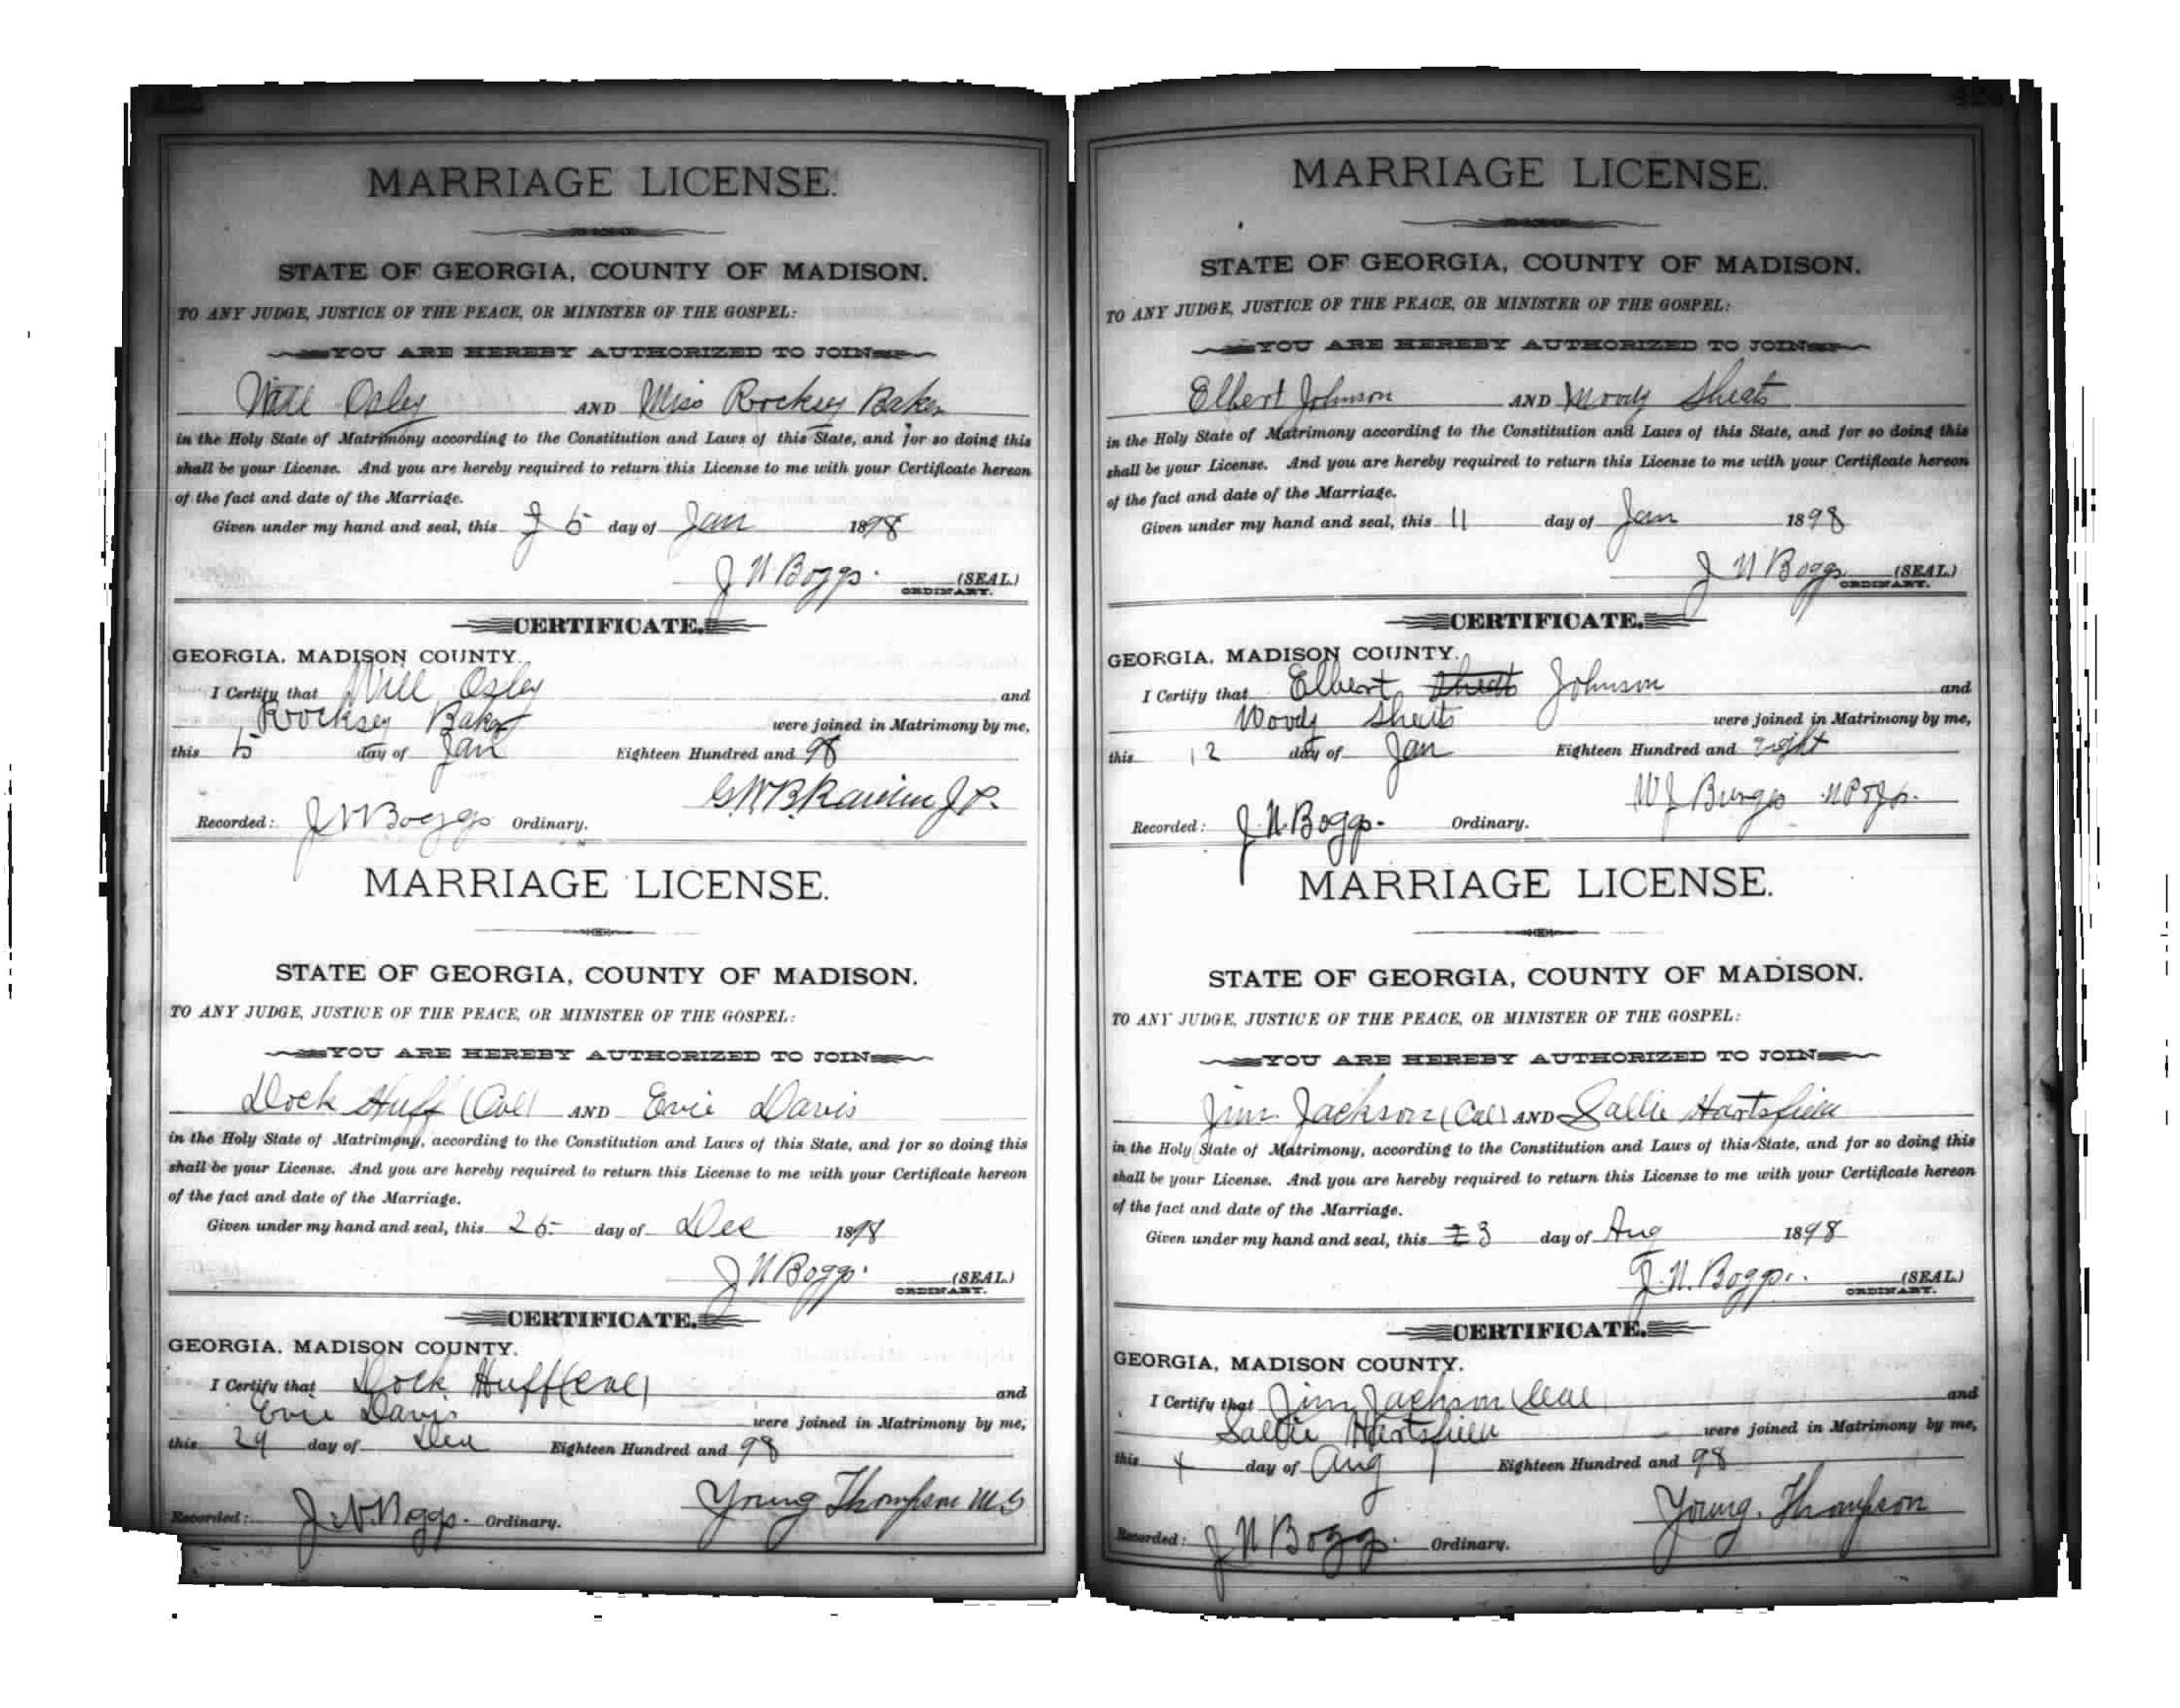 MARRIAGE LICENSE.
STATE OF GEORGIA, COUNTY OF MADISON.
TO ANY JUDGE, JUSTICE OF THE PEACE, OR MINISTER OF THE GOSPEL:
YOU ARE HEREBY AUTHORIZED TO JOIN
Will Osley AND Miss Rocksey Baker
in the Holy State of Matrimony according to the Constitution and Laws of this State, and for so doing this
shall be your License. And you are hereby required to return this License to me with your Certificate hereon
of the fact and date of the Marriage.
Given under my hand and seal, this 5 day of Jan 1898
J N Boggs. (SEAL.)
ORDINARY.
CERTIFICATE.
GEORGIA, MADISON COUNTY.
I Certify that Will Osley and
Rocksey Baker were joined in Matrimony by me,
this 5 day of Jan Eighteen Hundred and 98
G.W.B. J.P.
Recorded: J N Boggs Ordinary.
MARRIAGE LICENSE.
STATE OF GEORGIA, COUNTY OF MADISON.
TO ANY JUDGE, JUSTICE OF THE PEACE, OR MINISTER OF THE GOSPEL:
YOU ARE HEREBY AUTHORIZED TO JOIN
Dock Huff (Col) AND Evie Davis
in the Holy State of Matrimony, according to the Constitution and Laws of this State, and for so doing this
shall be your License. And you are hereby required to return this License to me with your Certificate hereon
of the fact and date of the Marriage.
Given under my hand and seal, this 26 day of Dec 1898
J N Boggs. (SEAL.)
ORDINARY.
CERTIFICATE.
GEORGIA, MADISON COUNTY.
I Certify that Dock Huff (Col) and
Evie Davis were joined in Matrimony by me,
this 29 day of Dec Eighteen Hundred and 98
Young Thompson M.G
Recorded: J.N. Boggs. Ordinary.
MARRIAGE LICENSE.
STATE OF GEORGIA, COUNTY OF MADISON.
TO ANY JUDGE, JUSTICE OF THE PEACE, OR MINISTER OF THE GOSPEL:
YOU ARE HEREBY AUTHORIZED TO JOIN
Elbert Johnson AND Woody Sheats
in the Holy State of Matrimony according to the Constitution and Laws of this State, and for so doing this
shall be your License. And you are hereby required to return this License to me with your Certificate hereon
of the fact and date of the Marriage.
Given under my hand and seal, this 11 day of Jan 1898
J N Boggs (SEAL.)
ORDINARY.
CERTIFICATE.
GEORGIA, MADISON COUNTY.
I Certify that Elbert Sheats Johnson and
Woody Sheats were joined in Matrimony by me,
this 12 day of Jan Eighteen Hundred and eight
W J Burges
Recorded: J. N. Boggs. Ordinary.
MARRIAGE LICENSE.
STATE OF GEORGIA, COUNTY OF MADISON.
TO ANY JUDGE, JUSTICE OF THE PEACE, OR MINISTER OF THE GOSPEL:
YOU ARE HEREBY AUTHORIZED TO JOIN
Jim Jackson (Col) AND Sallie Hartsfield
in the Holy State of Matrimony, according to the Constitution and Laws of this State, and for so doing this
shall be your License. And you are hereby required to return this License to me with your Certificate hereon
of the fact and date of the Marriage.
Given under my hand and seal, this 3 day of Aug 1898
J. N. Boggs. (SEAL.)
ORDINARY.
CERTIFICATE.
GEORGIA, MADISON COUNTY.
I Certify that Jim Jackson (Col) and
Sallie Hartsfield were joined in Matrimony by me,
this 4 day of Aug Eighteen Hundred and 98
Young. Thompson
Recorded: J N Boggs. Ordinary.